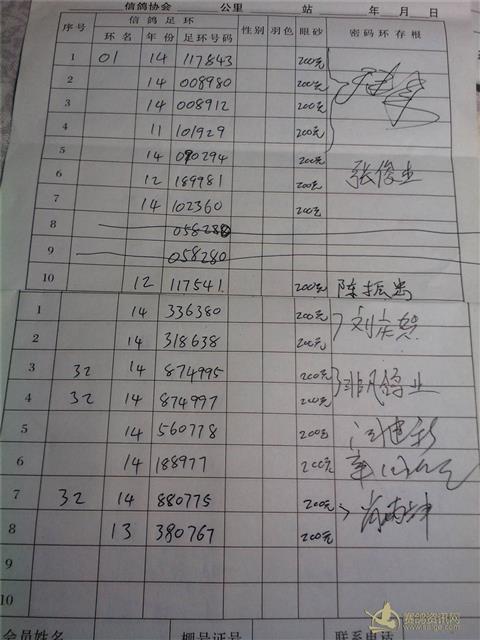 信鸽协会 公里 站 年 月 日
序号 信鸽足环 性别 羽色 眼砂 密码环存根
环名 年份 足环号码
1 01 14 117843 200元
2 14 008980 200元
3 14 008912 200元
4 11 101929 200元
5 14 090294 200元
6 12 189981 200元 张俊生
7 14 102360 200元
8 058280
9 058280
10 12 117541 200元 陈振忠
1 14 336380 200元
2 14 318638 200元
3 32 14 874995 200元 非凡鸽业
4 32 14 874997 200元
5 14 560778 200元
6 14 188977 200元
7 32 14 880775 200元
8 13 380767 200元
9
10
会员姓名 棚号证号 联系电话
赛鸽资讯网